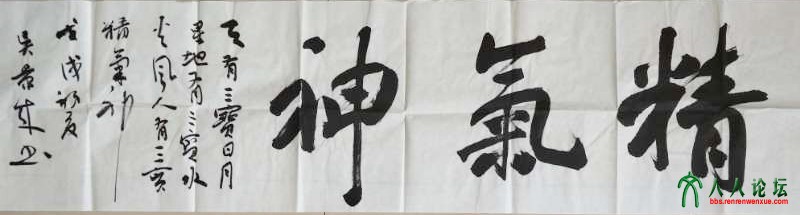 精氣神
天有三寶日月
星地有三寶水
火風人有三寶
精氣神
戊戌初夏
吴书
人人论坛
bbs.renrenwenxue.com